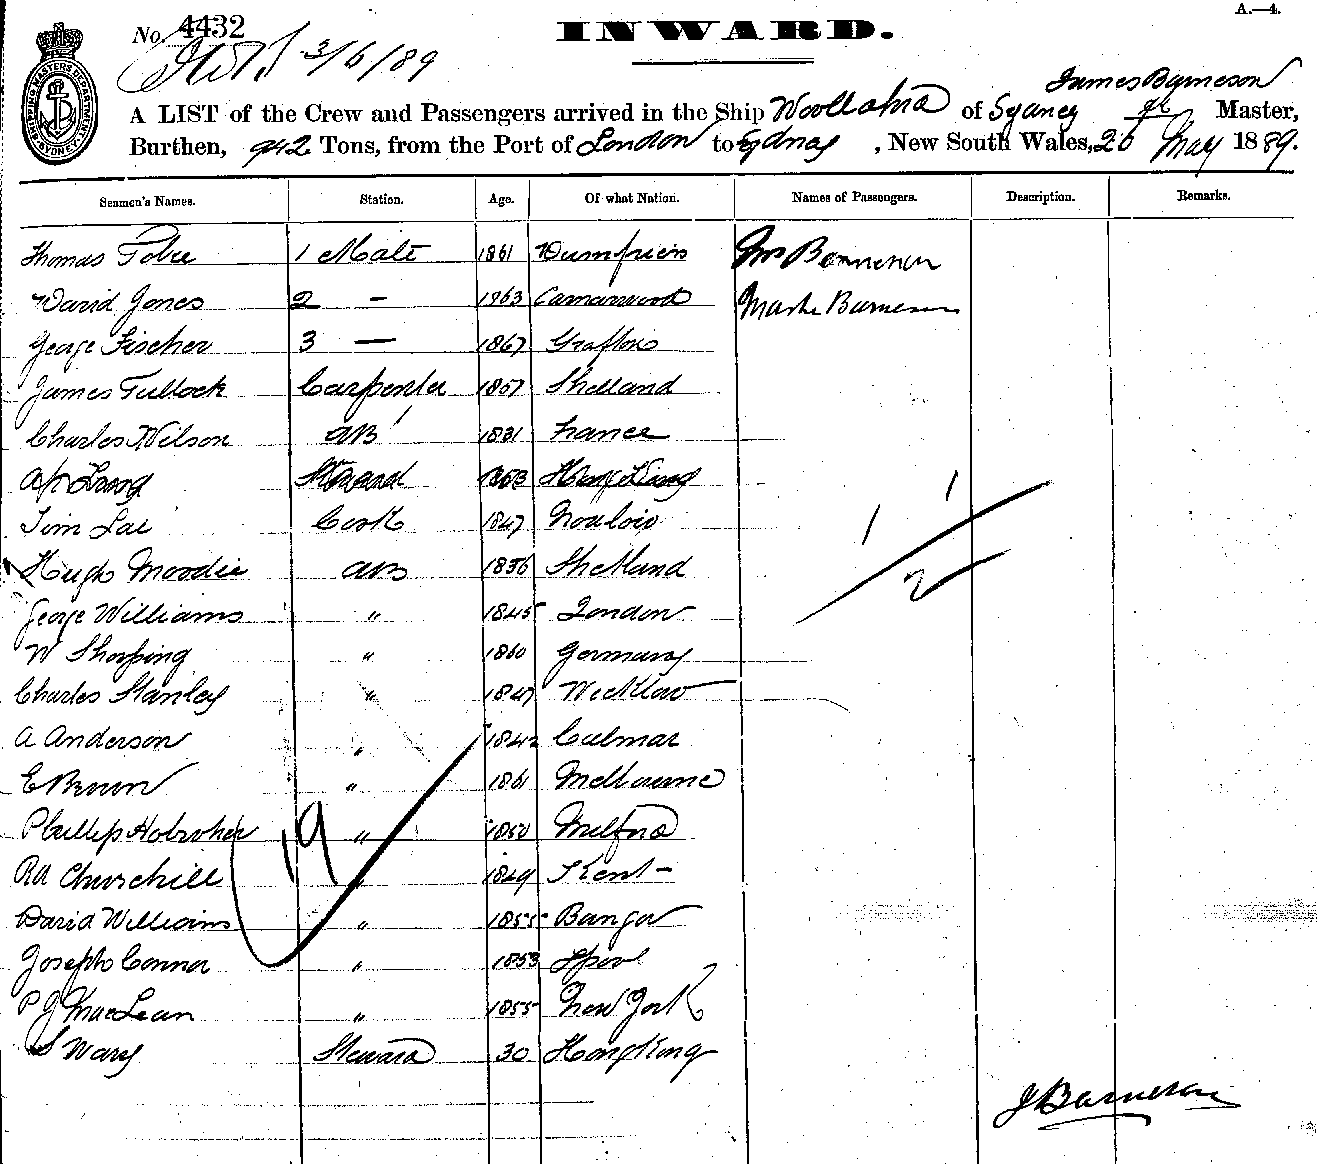 A.—4.
No. 4432
INWARD.
3/6/89
James Barneson
A LIST of the Crew and Passengers arrived in the Ship Woollahra of Sydney Master,
Burthen, 942 Tons, from the Port of London to Sydney, New South Wales, 26 May 1889.
SHIPPING MASTERS DEPARTMENT SYDNEY
Seamen's Names. Station. Age. Of what Nation. Names of Passengers. Description. Remarks.
Thomas 1 Mate 1861 Dumfries Mrs Barneson
David Jones 2 — 1863 Barneson
George Fischer 3 — 1867 Grafton
James Tullock Carpenter 1857 Shetland
Charles Wilson AB 1831 France
Hong Kong
Tim Lae Cook 1847
Hugh Moodie AB 1856 Shetland
George Williams " 1845 London
W " 1860 Germany
Charles Stanley " 1847 Wicklow
A Anderson " 1842 Calmar
E Brown " 1861 Melbourne
Phillip " 1850 Milford
RA Churchill " 1849 Kent —
David Williams " 1855 Bangor
Joseph Connor " 1853 Lpool
P J MacLean " 1855 New York
S Steward 30 Hong Kong
1 1
2
19
J Barneson